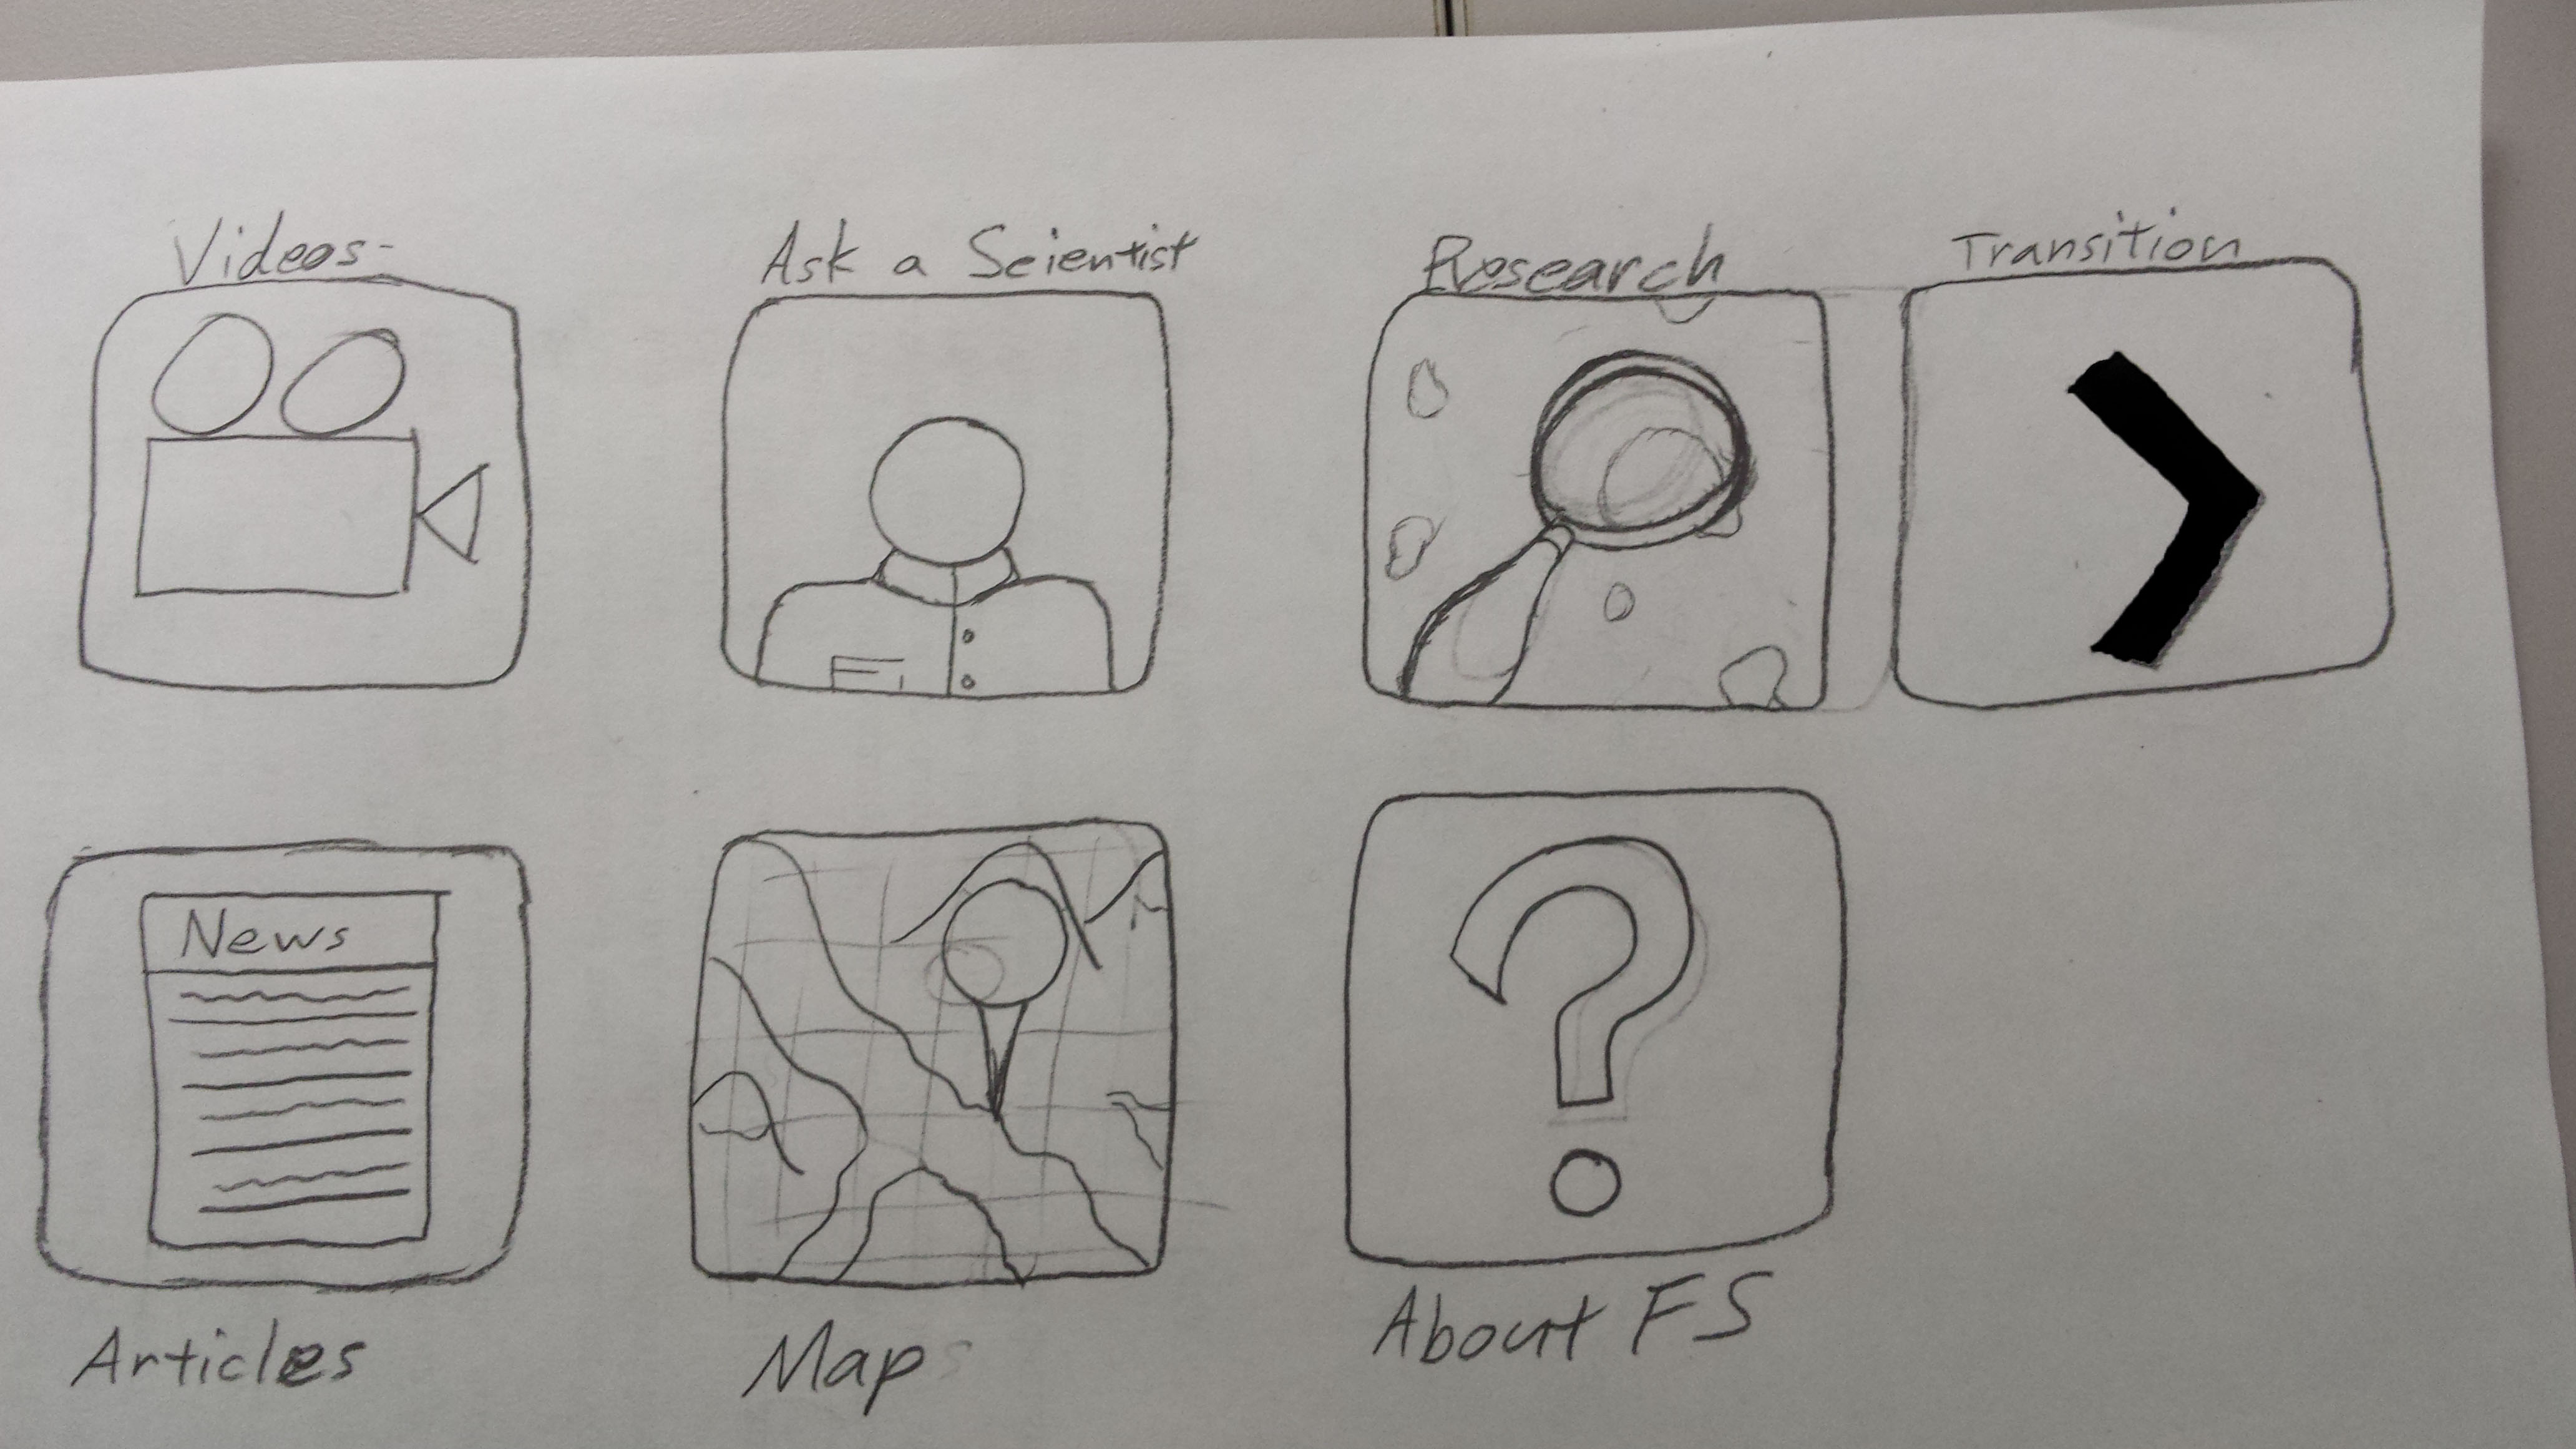 Videos
Ask a Scientist
Research
Transition
News
Articles
Map
About FS